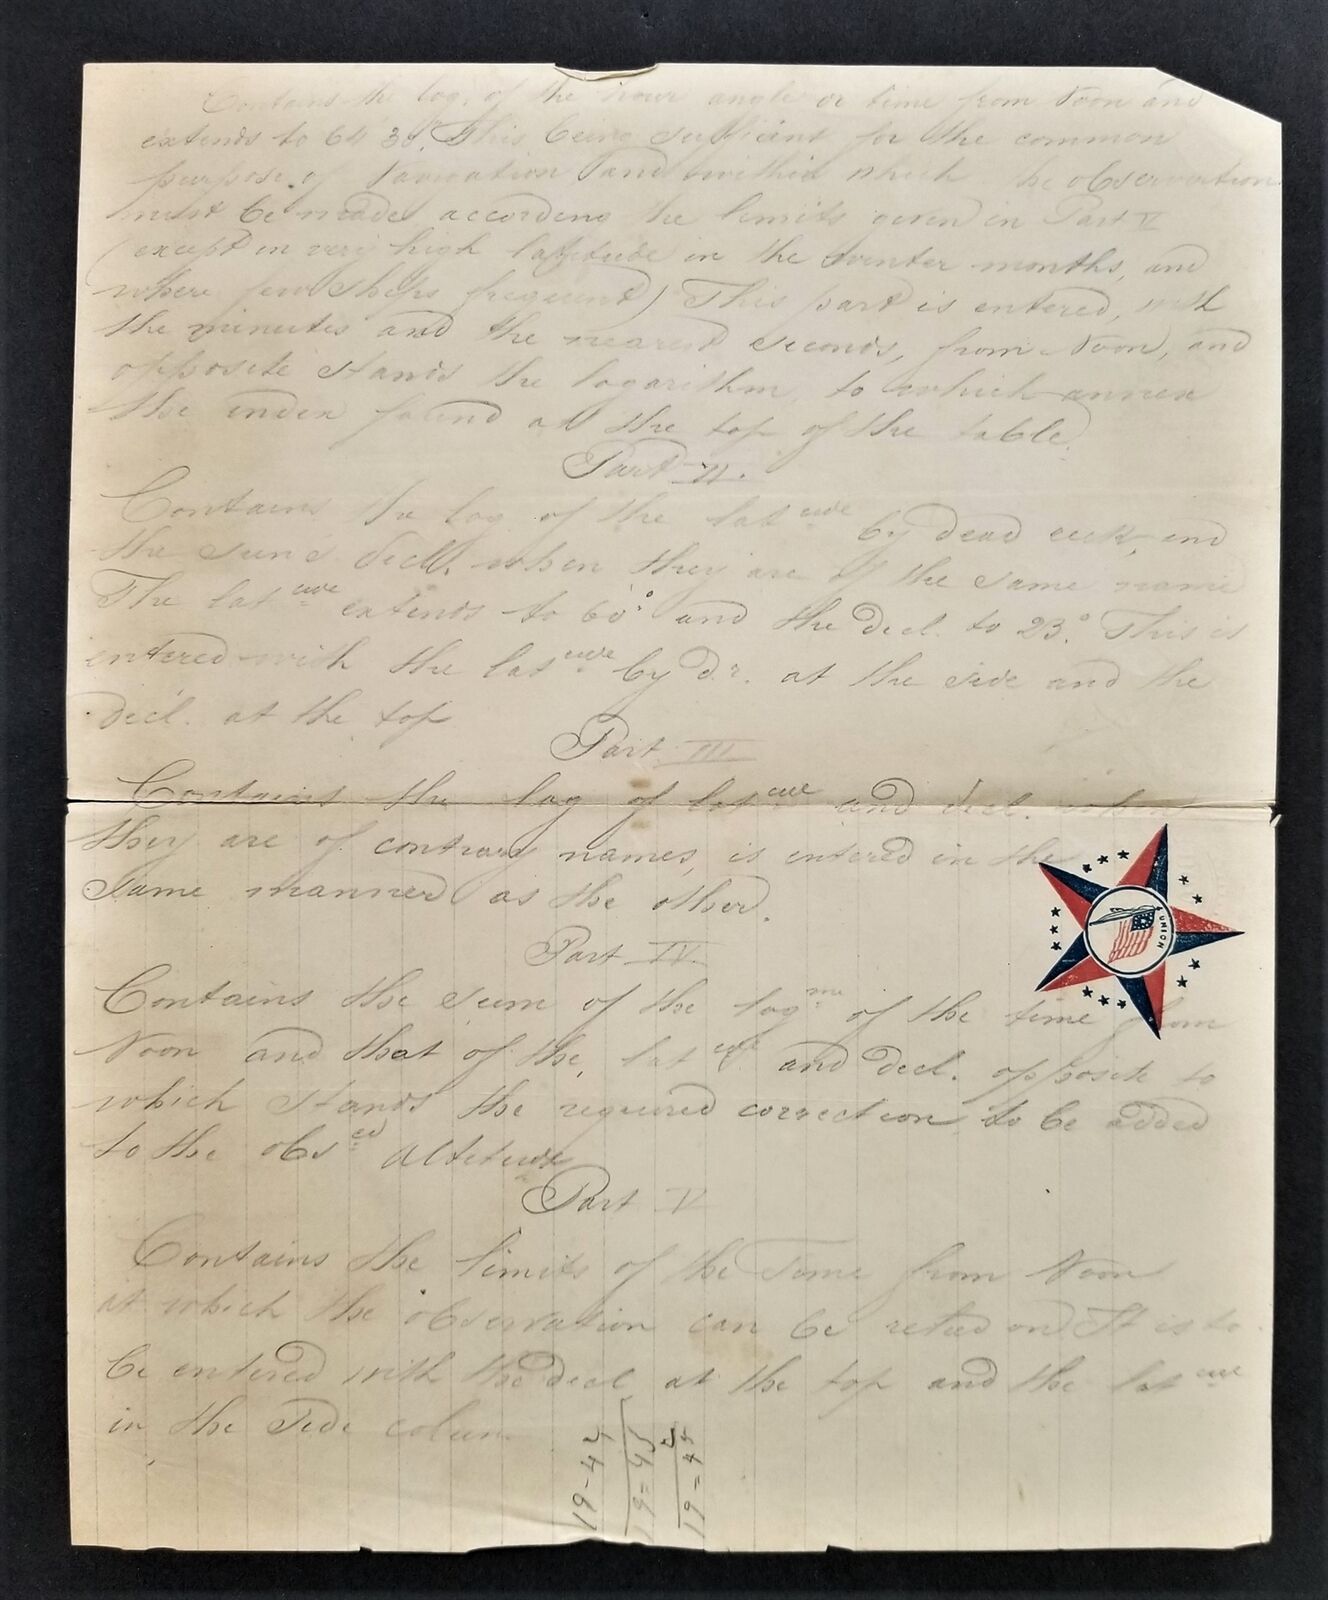 Contains the log. of the hour angle or time from Noon and
extends to 64 30. This being sufficient for the common
purpose of Navigation and within which the observation
must be made according the limits given in Part V
(except in very high latitude in the winter months, and
where few Ships frequent) This part is entered, with
the minutes and the nearest seconds, from Noon, and
opposite stands the logarithm, to which annex
the index found at the top of the table.
Part II.
Contains the log of the lat by dead reck, and
the sun's decl. when they are of the same name
The lat extends to 60° and the decl. to 23°. This is
entered with the lat by d.r. at the side and the
decl. at the top
Part III
Contains the log of lat and decl. when
they are of contrary names, is entered in the
same manner as the other.
Part IV.
Contains the sum of the log of the time from
Noon and that of the lat and decl. opposite to
which stands the required correction to be added
to the obsed altitude
Part V
Contains the limits of the Time from Noon
at which the observation can be relied on It is to
be entered with the decl at the top and the lat
in the side colum
UNION
19-45
19=45
19=45